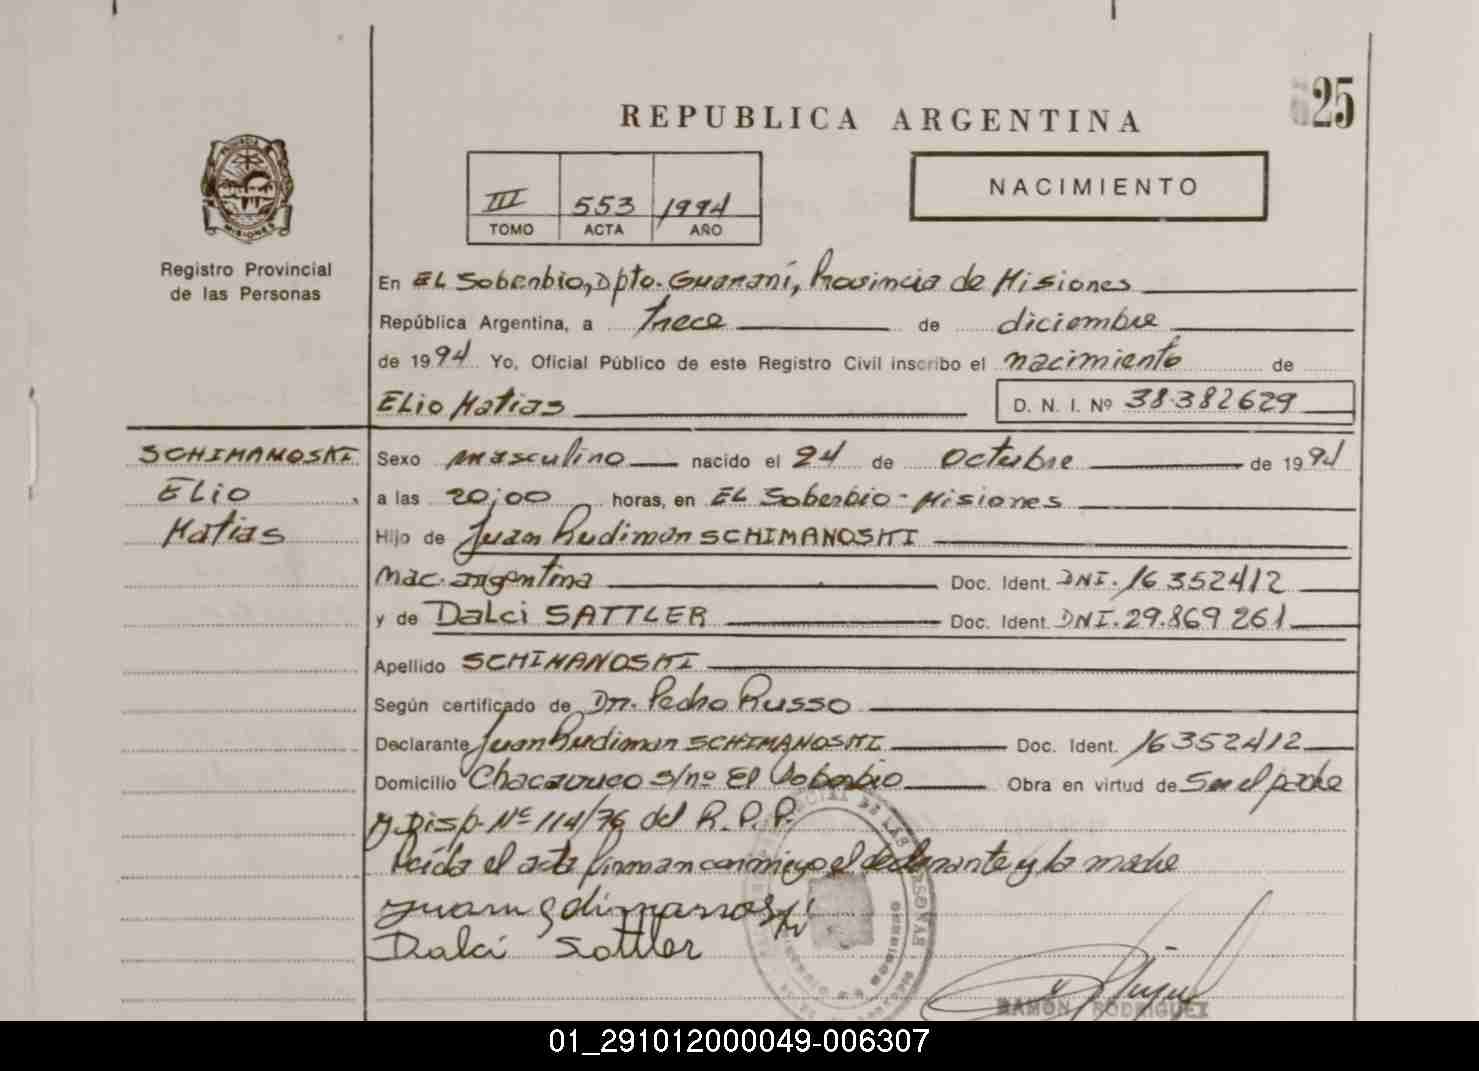 25
REPUBLICA ARGENTINA
III 553 1994
TOMO ACTA AÑO
NACIMIENTO
PROVINCIA
MISIONES
Registro Provincial
de las Personas
En EL Soberbio, Dpto. Guaraní, Provincia de Misiones
República Argentina, a trece de diciembre
de 1994 Yo, Oficial Público de este Registro Civil inscribo el nacimiento de
ELio Matias D. N. I. Nº 38.382629
SCHIMANOSKI
ELio
Matias
Sexo masculino nacido el 24 de Octubre de 1994
a las 20:00 horas, en EL Soberbio - Misiones
Hijo de Juan Rudimar SCHIMANOSKI
Nac. argentina Doc. Ident. DNI. 16352412
y de Dalci SATTLER Doc. Ident. DNI. 29.869261
Apellido SCHIMANOSKI
Según certificado de Dr. Pedro Russo
Declarante Juan Rudimar SCHIMANOSKI Doc. Ident. 16352412
Domicilio s/nº El Soberbio Obra en virtud de Ser el padre
y Disp. Nº 114/76 del R.P.P.
Leída el acta firman conmigo el declarante y la madre
Dalci Sattler
RAMON RODRIGUEZ
01_291012000049-006307